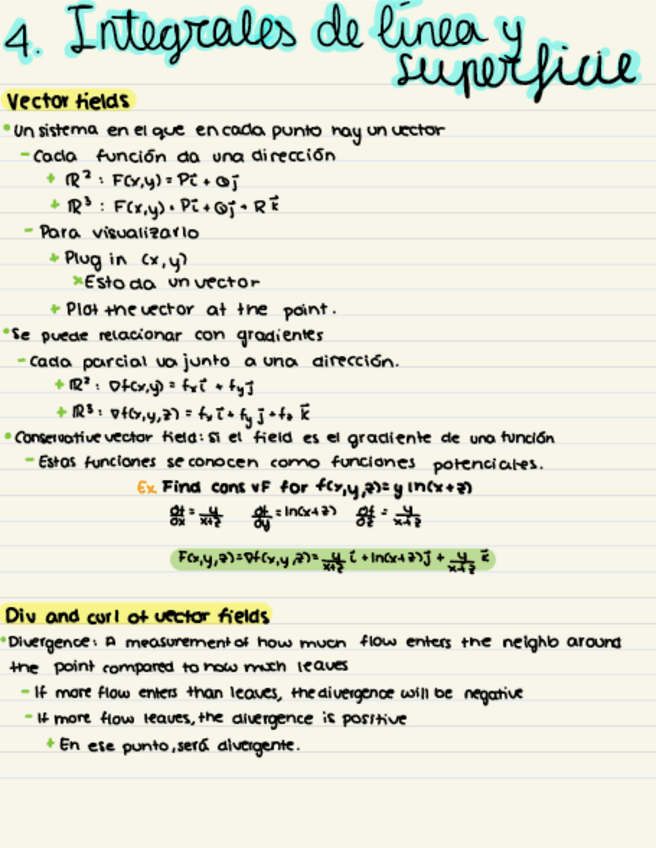 4. Integrales de línea y
superficie
Vector fields
• Un sistema en el que en cada punto hay un vector
- Cada función da una dirección
+ ℝ² : F(x,y) = Pi⃗ + Qj⃗
+ ℝ³ : F(x,y) = Pi⃗ + Qj⃗ + R k⃗
- Para visualizarlo
+ Plug in (x,y)
× Esto da un vector
+ Plot the vector at the point.
• Se puede relacionar con gradientes
- Cada parcial va junto a una dirección.
+ ℝ² : ∇f(x,y) = fₓi⃗ + fyj⃗
+ ℝ³ : ∇f(x,y,z) = fₓi⃗ + fy j⃗ + fz k⃗
• Conservative vector field: si el field es el gradiente de una función
- Estas funciones se conocen como funciones potenciales.
Ex Find cons VF for f(x,y,z) = y ln(x+z)
∂f/∂x = y/(x+z) ∂f/∂y = ln(x+z) ∂f/∂z = y/(x+z)
F(x,y,z) = ∇f(x,y,z) = y/(x+z) i⃗ + ln(x+z)j⃗ + y/(x+z) k⃗
Div and curl of vector fields
• Divergence: A measurement of how much flow enters the neighb around
the point compared to how much leaves
- If more flow enters than leaves, the divergence will be negative
- If more flow leaves, the divergence is positive
+ En ese punto, será divergente.